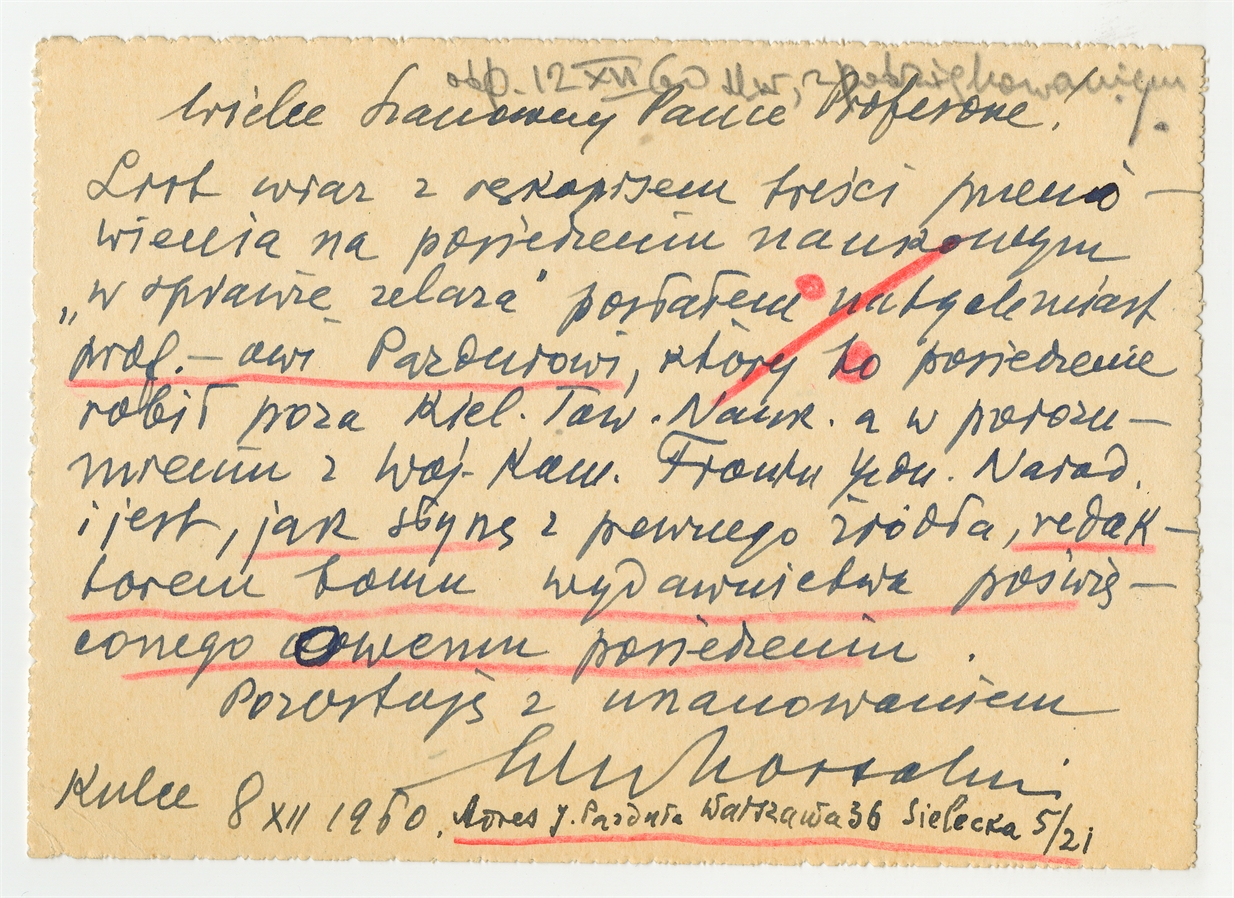 odp. 12 XII 60 z podziękowaniem
Wielce Szanowny Panie Profesorze!
List wraz z rękopisem treści przemó-
wienia na posiedzeniu naukowym
„w sprawie żelaza" posłałem natychmiast
prof.-owi Pazdurowi, który to posiedzenie
robił poza Kiel. Tow. Nauk. a w porozu-
mieniu z Woj. Kom. Frontu Jedn. Narod.
i jest, jak słyszę z pewnego źródła, redak-
torem tomu wydawnictwa poświę-
conego owemu posiedzeniu.
Pozostaję z uszanowaniem
Kielce 8 XII 1960. Adres J. Pazdura Warszawa 36 Sielecka 5/21